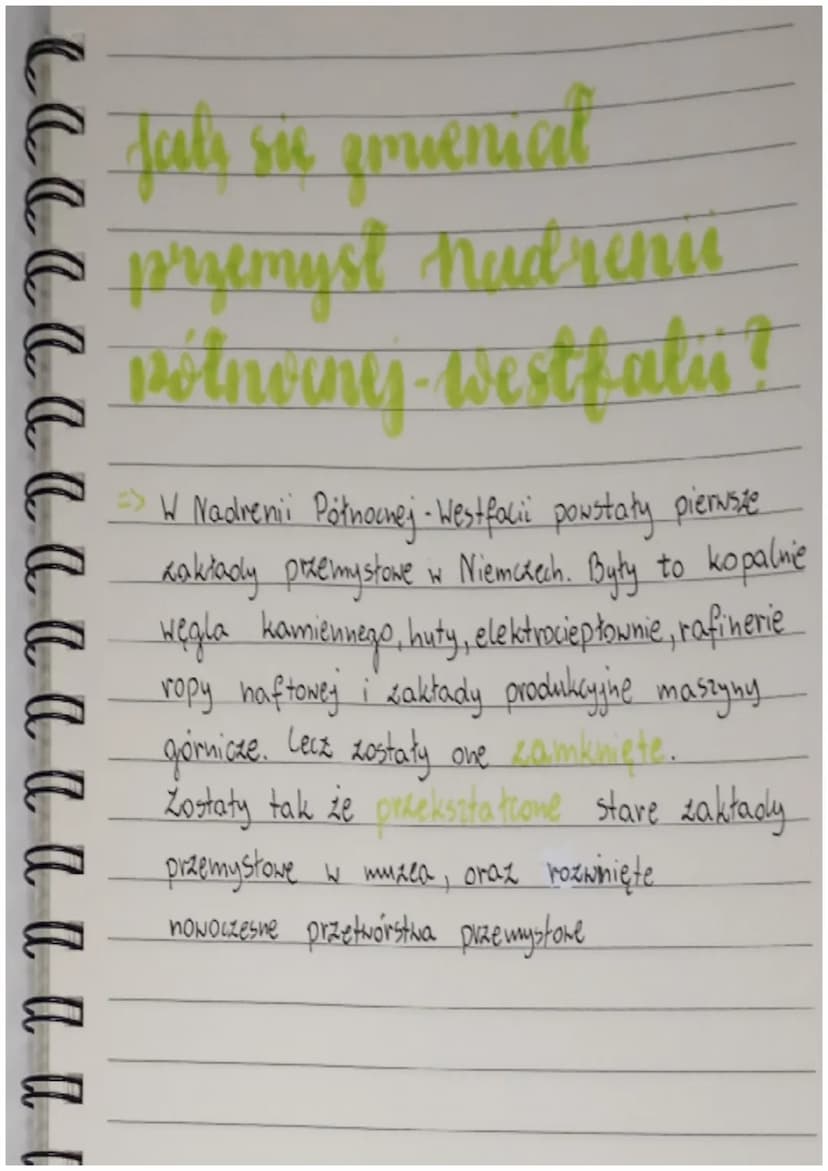 Jak się zmieniał
przemysł Nadrenii
północnej-westfalii?
=> W Nadrenii Północnej-Westfalii powstały pierwsze
zakłady przemysłowe w Niemczech. Były to kopalnie
węgla kamiennego, huty, elektrociepłownie, rafinerie
ropy naftowej i zakłady produkcyjne maszyny
górnicze. Lecz zostały one zamknięte.
Zostały tak że przekształcone stare zakłady
przemysłowe w muzea, oraz rozwinięte
nowoczesne przetwórstwa przemysłowe